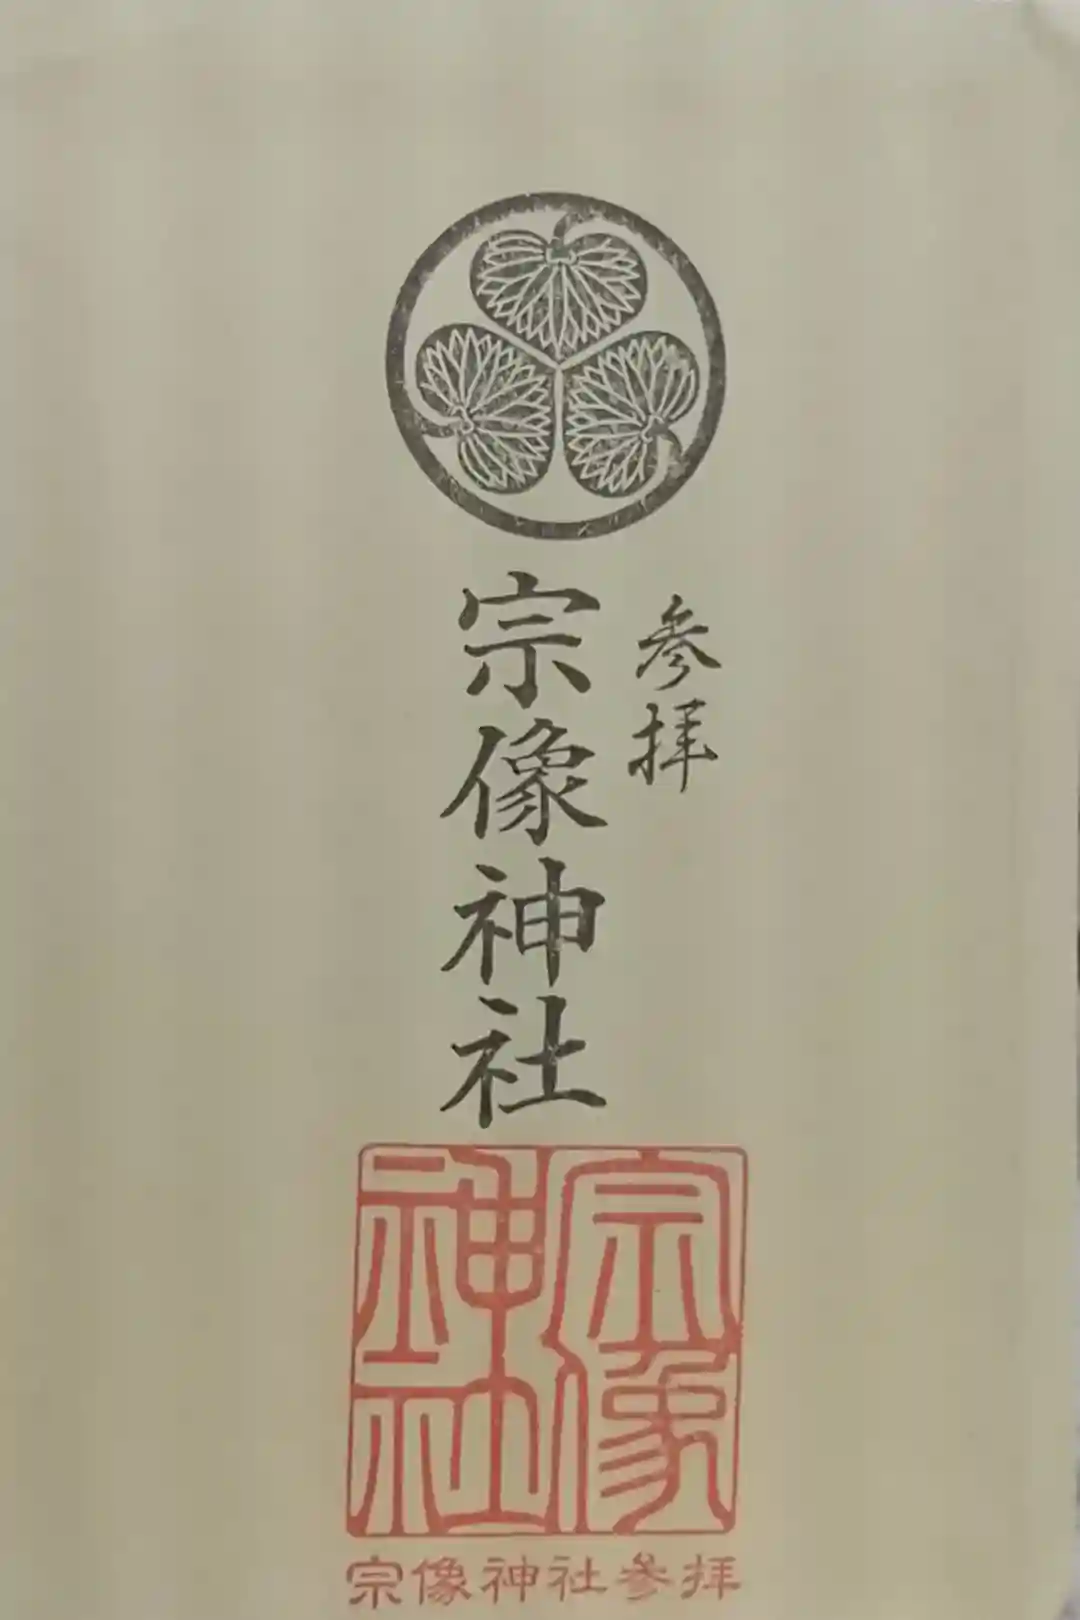 参拝
宗像神社
宗像神社
宗像神社参拝